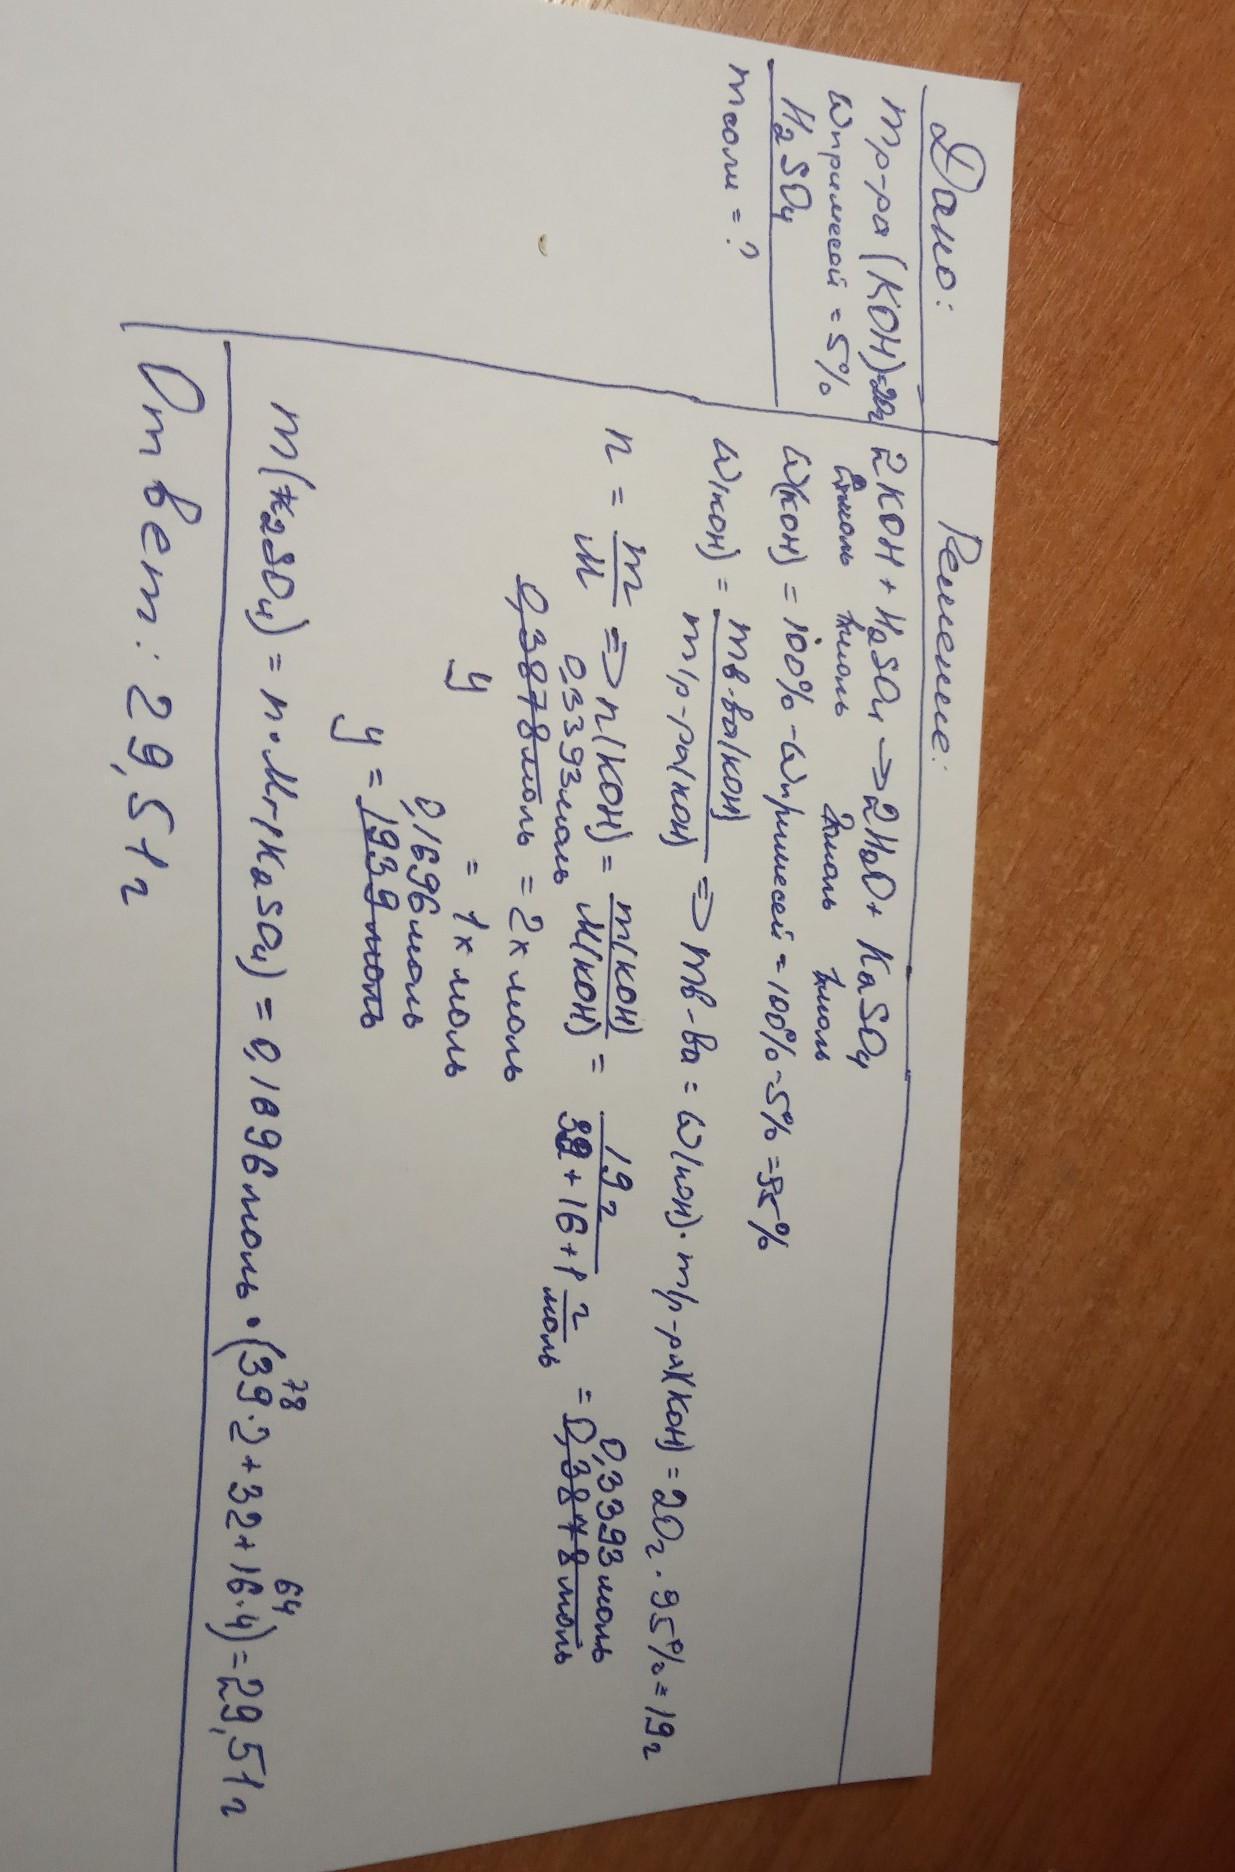 Дано:
mр-ра (KOH)=20г
ωпримесей = 5%
H2SO4
mсоли = ?
Решение:
2KOH + H2SO4 → 2H2O + K2SO4
2моль 1моль 2моль 1моль
ω(KOH) = 100% - ωпримесей = 100% - 5% = 95%
ω(KOH) = mв-ва(KOH) / mр-ра(KOH) => mв-ва = ω(KOH)·mр-ра(KOH) = 20г·95% = 19г
n = m / M => n(KOH) = m(KOH) / M(KOH) = 19г / 39+16+1 г/моль = 0,3393моль
0,3878моль
0,3393моль
0,3878моль = 2x моль
y = 1x моль
0,1696моль
y = 1939моль
78 64
m(K2SO4) = n·Mr(K2SO4) = 0,1696моль·(39·2+32+16·4)=29,51г
Ответ: 29,51г